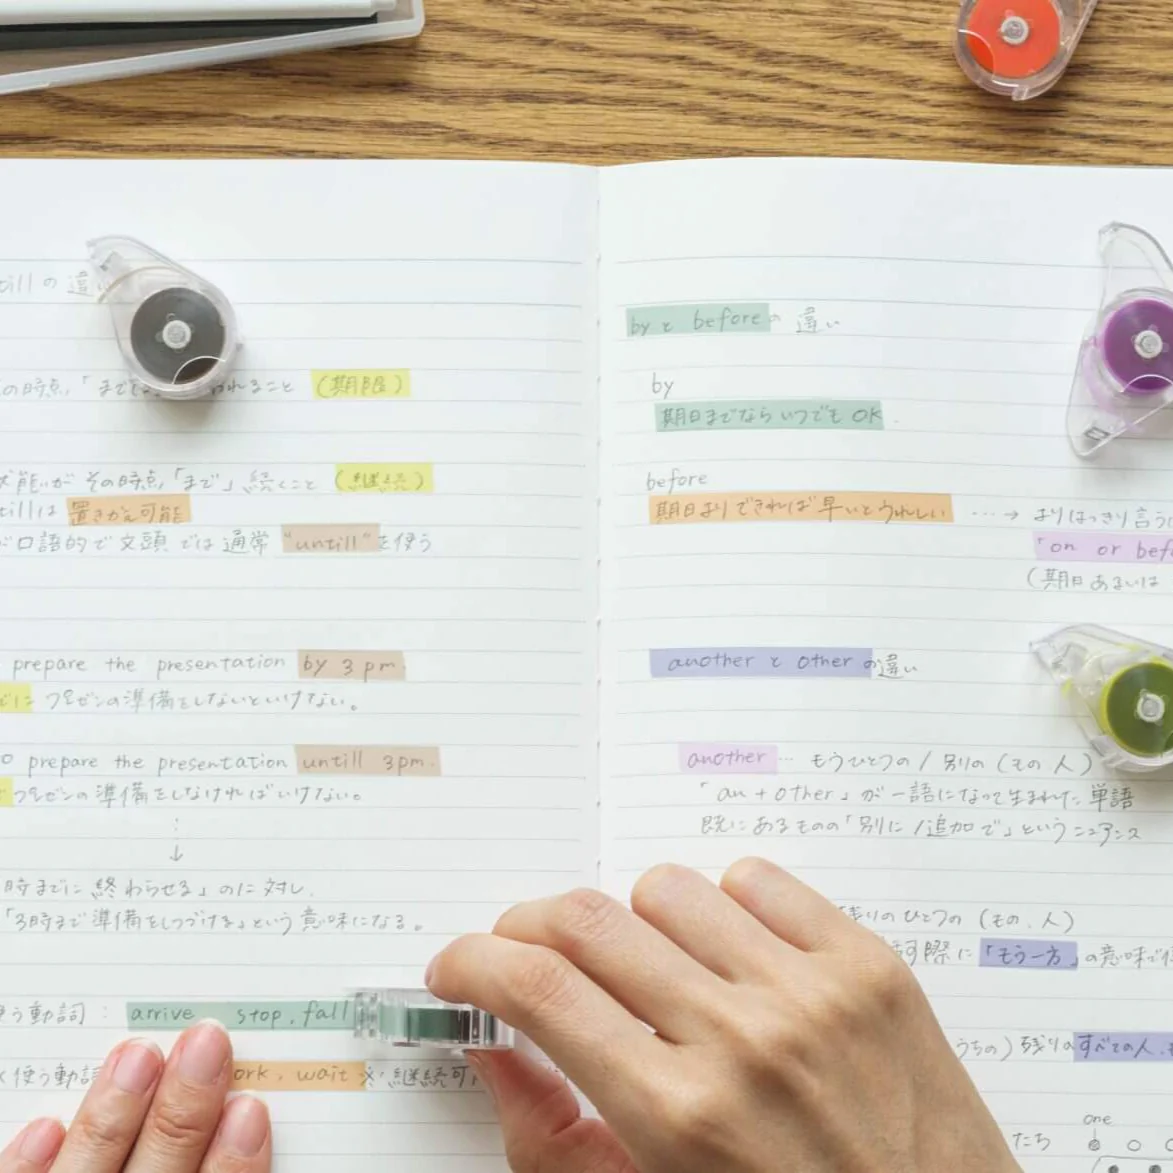 tillの違い
の時点「まで
われること (期限)
状態がその時点「まで」続くこと (継続)
tillは置きかえ可能
口語的で文頭では通常 "untill"を使う
prepare the presentation by 3 pm.
でに プレゼンの準備をしないといけない。
o prepare the presentation untill 3pm.
プレゼンの準備をしなければいけない。
↓
時までに終わらせる」のに対し、
「3時まで準備をしつづける」という意味になる。
使う動詞 : arrive, stop, fall
く使う動詞
ork, wait
継続可
byとbeforeの違い
by
期日までならいつでもOK.
before
期日よりできれば早いとうれしい ····→ よりはっきり言う
「on or befo
(期日あるいは
anotherとotherの違い
another … もうひとつの / 別の (もの 人)
「an + other」が一語になって生まれた単語
既にあるものの「別に/追加で」というニュアンス
残りのひとつの (もの、人)
際に「もう一方」の意味で
うちの) 残りのすべての人、も
one
たち